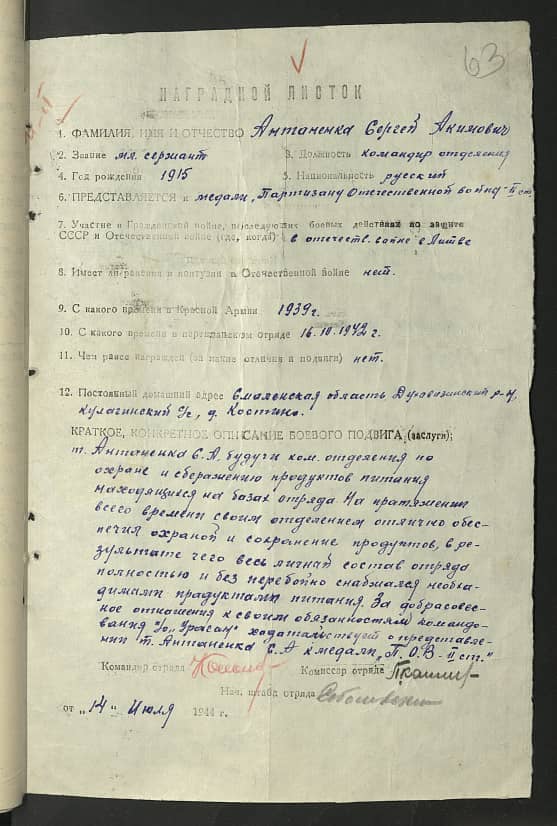 63
НАГРАДНОЙ ЛИСТОК
1. ФАМИЛИЯ, ИМЯ И ОТЧЕСТВО Антаненка Сергей Акимович
2. Звание мл. сержант 3. Должность командир отделения
4. Год рождения 1915 5. Национальность русский
6. ПРЕДСТАВЛЯЕТСЯ к медали „Партизану Отечественной войны-II ст.
7. Участие в Гражданской войне, последующих боевых действиях по защите
СССР и Отечественной войне (где, когда) в отечеств. войне в Литве
8. Имеет ли ранения и контузии в Отечественной войне нет.
9. С какого времени в Красной Армии 1939 г.
10. С какого времени в партизанском отряде 16.10.1942 г.
11. Чем ранее награжден (за какие отличия и подвиги) нет.
12. Постоянный домашний адрес Смоленская область Духавщинский р-н,
Кулагинский с/с, д. Костино.
КРАТКОЕ, КОНКРЕТНОЕ ОПИСАНИЕ БОЕВОГО ПОДВИГА (заслуги):
т. Антаненка С.А. будучи ком. отделения по
охране и сбережению продуктов питания
находящихся на базах отряда На пратяжении
всего времени своим отделением отлично обес-
печил охраной и сохранение продуктов, в ре-
зультате чего весь личный состав отряда
полностью и без перебойно снабжался необха-
димами продуктами питания. За добрасовес-
ное отнашения к своим обязанностям командо-
вания п/о „ ходатайствует о представле-
нии т. Антаненка С.А к медали „П.О.В-II ст."
Командир отряда Комиссар отряда
Нач. штаба отряда
от „14" Июля 1944 г.